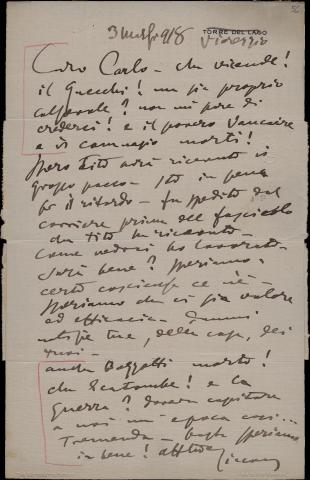 3 marzo 918
TORRE DEL LAGO
Viareggio
Caro Carlo - che vicende!
il Gnecchi! ma sia proprio
colpevole? non mi pare di
crederci! e il povero Vaucaire
e di morti!
spero Tito avrà ricevuto il
grosso pacco - Sto in pena
per il ritardo - fu spedito dal
corriere prima del fascicolo
che Tito ha ricevuto -
Come vedrai ho lavorato -
Sarà bene? speriamo -
certo coscienza ce n'è -
speriamo che vi sia valore
ed efficacia - Dammi
notizie tue, della casa, dei
tuoi -
anche Bazzotti morto!
che Ecatombe! e la
guerra? doveva capitare
a noi un'epoca così...
Tremenda - basta speriamo
in bene!